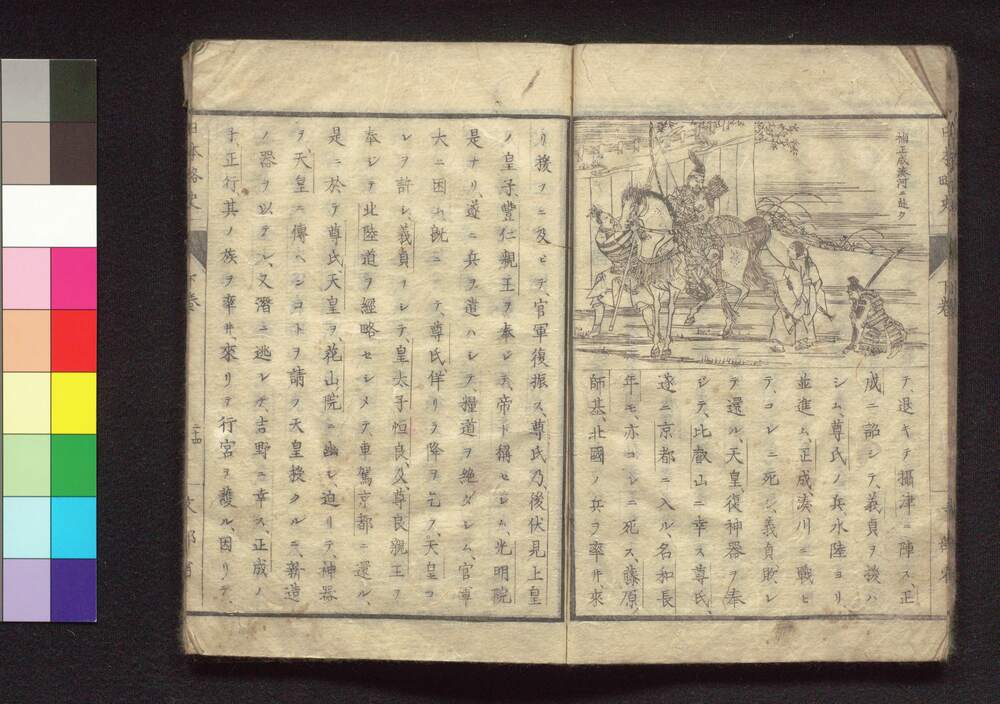 楠正成湊河ニ赴ク
テ、退キテ攝津ニ陣ス、正
成ニ詔シテ、義貞ヲ援ハ
シム、尊氏ノ兵、水陸ヨリ
並進ム、正成、湊川ニ戰ヒ
テ、コレニ死シ、義貞敗レ
テ還ル、天皇、復神器ヲ奉
シテ、比叡山ニ幸ス、尊氏、
遂ニ京都ニ入ル、名和長
年モ、亦コレニ死ス、藤原
師基、北國ノ兵ヲ率井、來
リ援フニ及ビテ、官軍復振ス、尊氏乃、後伏見上皇
ノ皇子、豐仁親王ヲ奉シテ、帝ト稱セシム、光明院
是ナリ、遂ニ兵ヲ遣ハシテ、糧道ヲ絶タシム、官軍
大ニ困ム、既ニシテ、尊氏佯リテ降ヲ乞フ、天皇コ
レヲ許シ、義貞ヲシテ、皇太子恒良、及尊良親王ヲ
奉シテ北陸道ヲ經略セシメテ車駕京都ニ還ル、
是ニ於テ尊氏、天皇ヲ、花山院ニ幽シ、迫リテ、神器
ヲ、天皇ニ傳ヘンコトヲ請フ天皇授クルニ、新造
ノ器ヲ以テシ、又潛ニ逃レテ、吉野ニ幸ス、正成ノ
子、正行、其ノ族ヲ率井、來リテ行宮ヲ護ル、因リテ、
日本略史
下巻
二十四
文部省